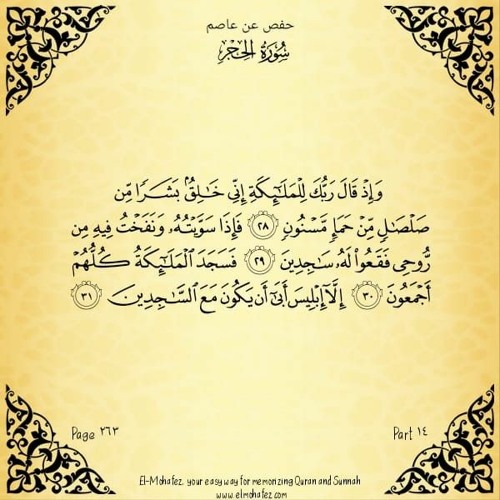 حفص عن عاصم
سُورَةُ الحِجْرِ
وَإِذْ قَالَ رَبُّكَ لِلْمَلَٰٓئِكَةِ إِنِّى خَٰلِقٌۢ بَشَرًا مِّن
صَلْصَٰلٍ مِّنْ حَمَإٍ مَّسْنُونٍ ٢٨ فَإِذَا سَوَّيْتُهُۥ وَنَفَخْتُ فِيهِ مِن
رُّوحِى فَقَعُوا۟ لَهُۥ سَٰجِدِينَ ٢٩ فَسَجَدَ ٱلْمَلَٰٓئِكَةُ كُلُّهُمْ
أَجْمَعُونَ ٣٠ إِلَّآ إِبْلِيسَ أَبَىٰٓ أَن يَكُونَ مَعَ ٱلسَّٰجِدِينَ ٣١
Page ٢٦٣
Part ١٤
El-Mohafez, your easy way for memorizing Quran and Sunnah
www.elmohafez.com